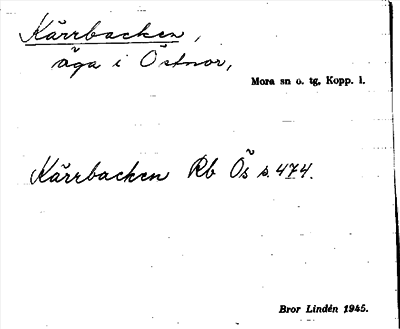 Kärrbacken,
äga i Östnor,
Mora sn o. tg, Kopp. l.
Kärrbacken Rb Ös s. 474.
Bror Lindén 1945.